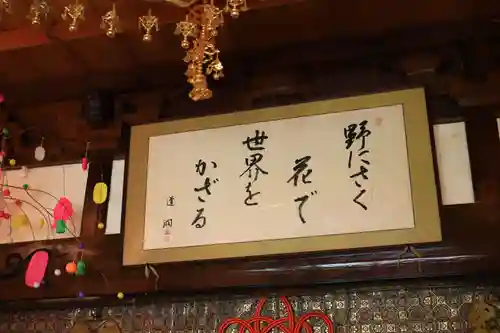 野にさく
花で
世界を
かざる